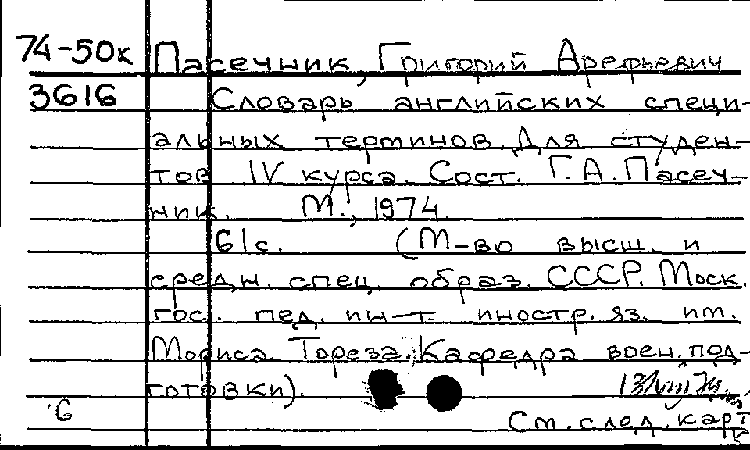 74-50к Пасечник, Григорий Арефьевич
3616 Словарь английских специ-
альных терминов. Для студен-
тов IV курса. Сост. Г.А.Пасеч-
ник. М., 1974.
61с. (М-во высш. и
средн. спец. образ. СССР. Моск.
гос. пед. ин-т иностр. яз. им.
Мориса Тореза. Кафедра воен. под-
готовки).
6 См. след. карт